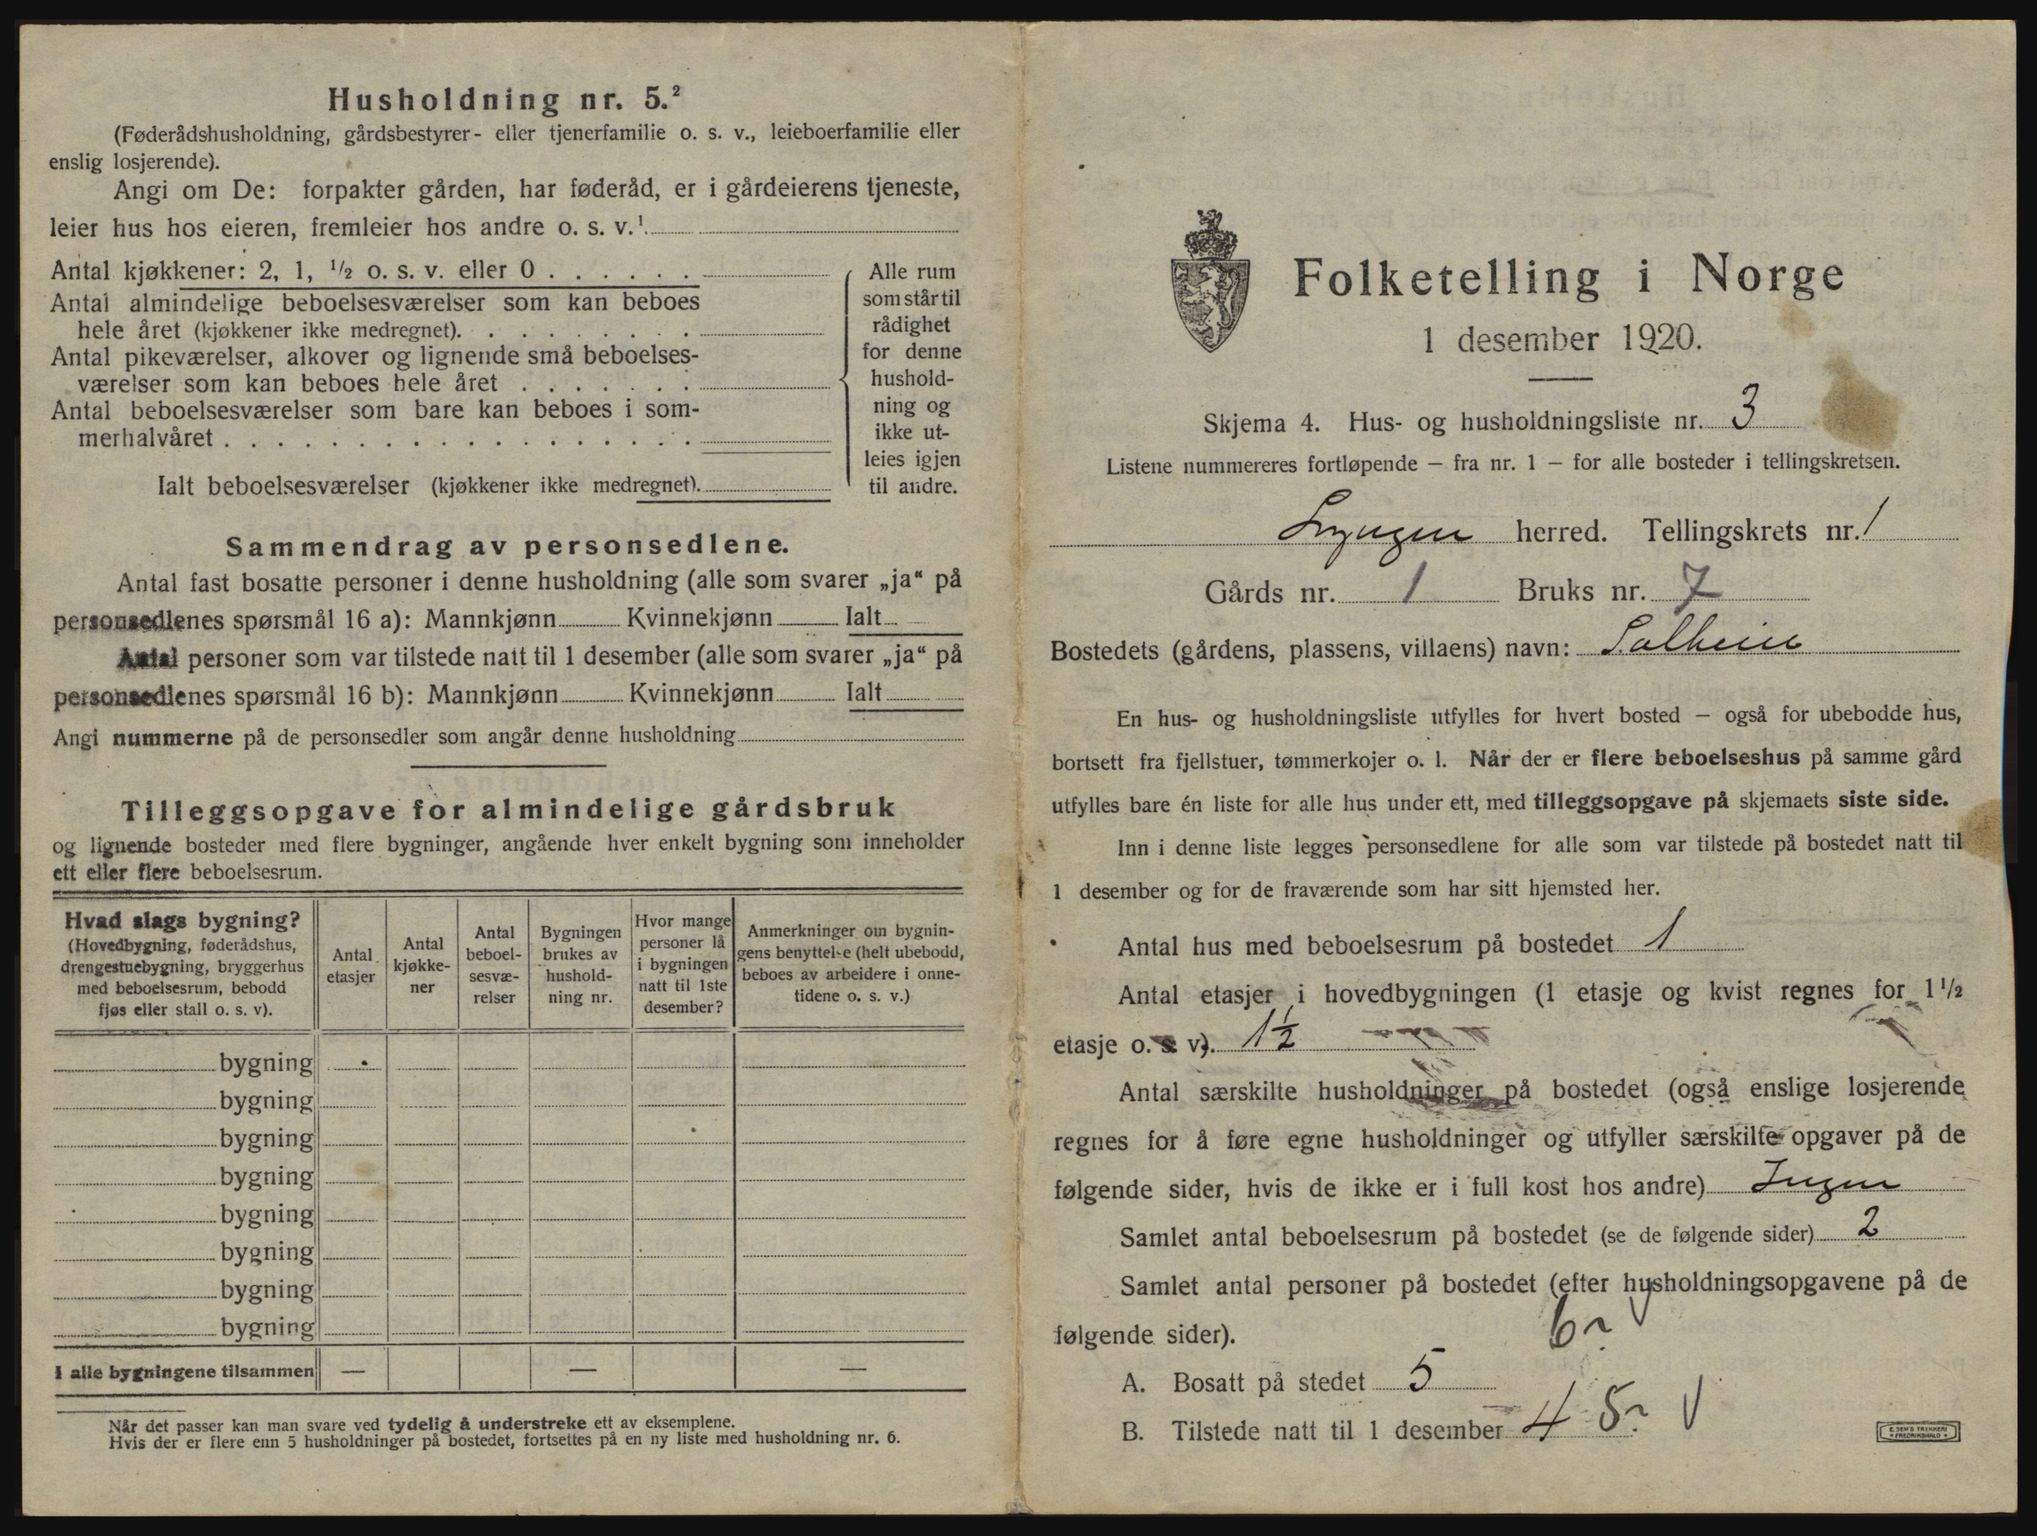 Husholdning nr. 5.²
(Føderådshusholdning, gårdsbestyrer- eller tjenerfamilie o. s. v., leieboerfamilie eller
enslig losjerende).
Angi om De: forpakter gården, har føderåd, er i gårdeierens tjeneste,
leier hus hos eieren, fremleier hos andre o. s. v.¹
Antal kjøkkener: 2, 1, ½ o. s. v. eller 0 . . . . . .
Antal almindelige beboelsesværelser som kan beboes
hele året (kjøkkener ikke medregnet). . . . . . . . .
Antal pikeværelser, alkover og lignende små beboelses-
værelser som kan beboes hele året . . . . . . .
Antal beboelsesværelser som bare kan beboes i som-
merhalvåret . . . . . . . . . . . . . . . . . .
Ialt beboelsesværelser (kjøkkener ikke medregnet).
Alle rum
som står til
rådighet
for denne
hushold-
ning og
ikke ut-
leies igjen
til andre.
Sammendrag av personsedlene.
Antal fast bosatte personer i denne husholdning (alle som svarer „ja“ på
personsedlenes spørsmål 16 a): Mannkjønn Kvinnekjønn Ialt
Antal personer som var tilstede natt til 1 desember (alle som svarer „ja“ på
personsedlenes spørsmål 16 b): Mannkjønn Kvinnekjønn Ialt
Angi nummerne på de personsedler som angår denne husholdning
Tilleggsopgave for almindelige gårdsbruk
og lignende bosteder med flere bygninger, angående hver enkelt bygning som inneholder
ett eller flere beboelsesrum.
Hvad slags bygning?
(Hovedbygning, føderådshus,
drengestuebygning, bryggerhus
med beboelsesrum, bebodd
fjøs eller stall o. s. v).
Antal
etasjer
Antal
kjøkke-
ner
Antal
beboel-
sesvæ-
relser
Bygningen
brukes av
hushold-
ning nr.
Hvor mange
personer lå
i bygningen
natt til 1ste
desember?
Anmerkninger om bygnin-
gens benyttelse (helt ubebodd,
beboes av arbeidere i onne-
tidene o. s. v.)
bygning
bygning
bygning
bygning
bygning
bygning
bygning
bygning
I alle bygningene tilsammen — — —
Når det passer kan man svare ved tydelig å understreke ett av eksemplene.
Hvis der er flere enn 5 husholdninger på bostedet, fortsettes på en ny liste med husholdning nr. 6.
Folketelling i Norge
1 desember 1920.
Skjema 4. Hus- og husholdningsliste nr. 3
Listene nummereres fortløpende — fra nr. 1 — for alle bosteder i tellingskretsen.
Lyngen herred. Tellingskrets nr. 1
Gårds nr. 1 Bruks nr. 7
Bostedets (gårdens, plassens, villaens) navn: Solheim
En hus- og husholdningsliste utfylles for hvert bosted — også for ubebodde hus,
bortsett fra fjellstuer, tømmerkojer o. l. Når der er flere beboelseshus på samme gård
utfylles bare én liste for alle hus under ett, med tilleggsopgave på skjemaets siste side.
Inn i denne liste legges personsedlene for alle som var tilstede på bostedet natt til
1 desember og for de fraværende som har sitt hjemsted her.
Antal hus med beboelsesrum på bostedet 1
Antal etasjer i hovedbygningen (1 etasje og kvist regnes for 1 ½
etasje o. s. v). 1½
Antal særskilte husholdninger på bostedet (også enslige losjerende
regnes for å føre egne husholdninger og utfyller særskilte opgaver på de
følgende sider, hvis de ikke er i full kost hos andre) Ingen
Samlet antal beboelsesrum på bostedet (se de følgende sider) 2
Samlet antal personer på bostedet (efter husholdningsopgavene på de
følgende sider). 6
A. Bosatt på stedet 5
B. Tilstede natt til 1 desember 4 5
E SEM'S TRYKKERI
FREDRIKSHALD